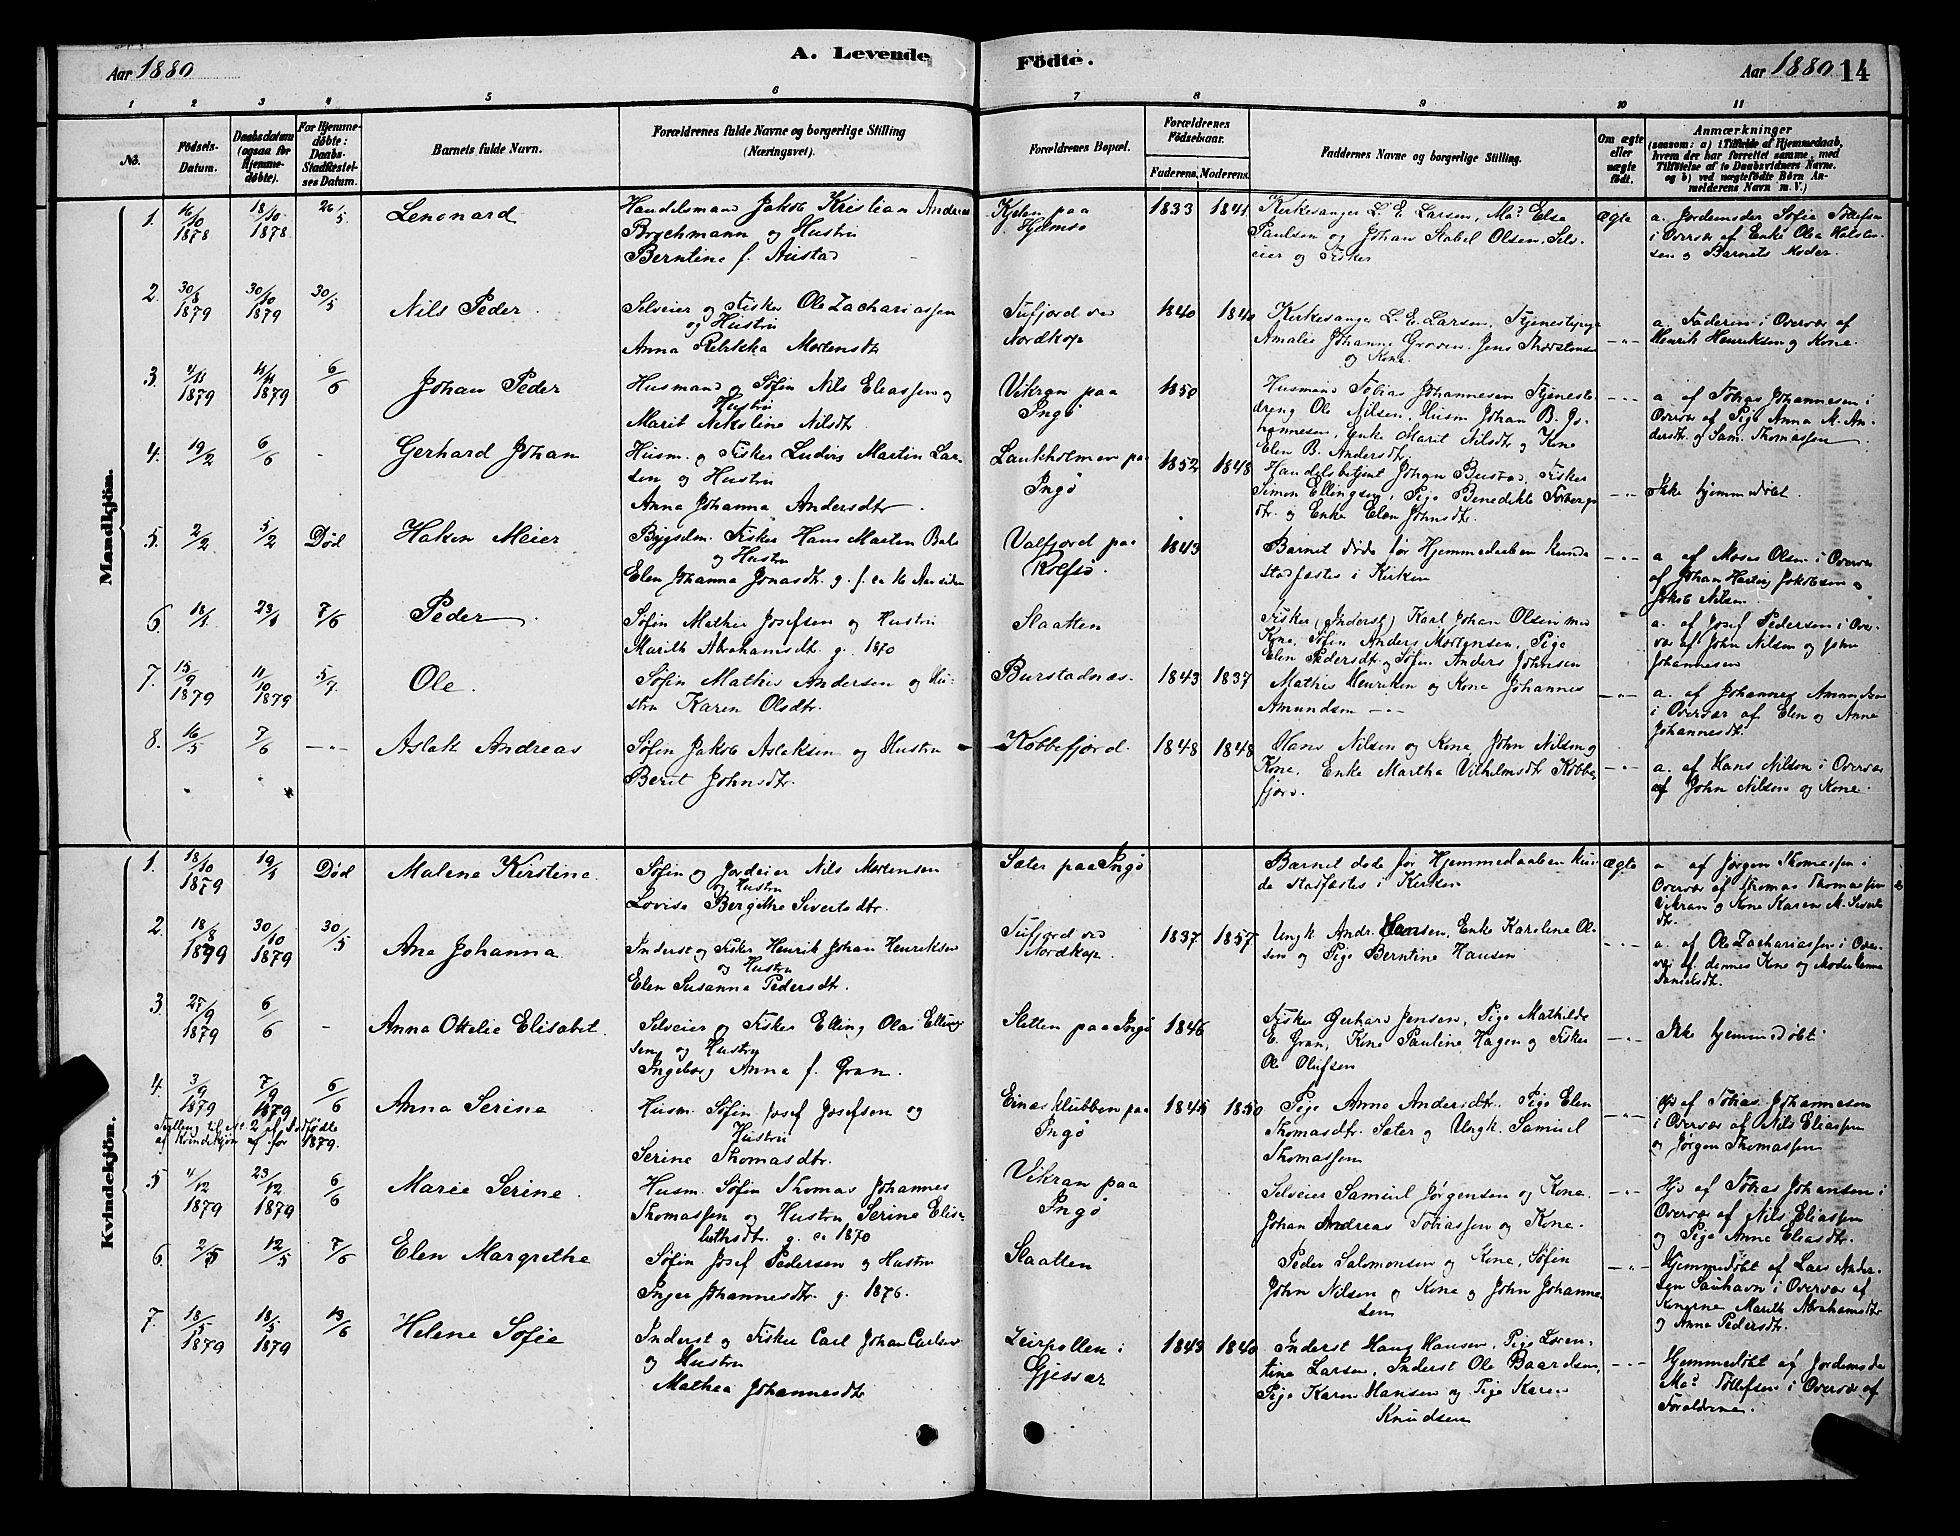 Aar 1880
A. Levende
Födte.
Aar 1880
14
1 2 3 4 5 6 7 8 9 10 11
No.
Födsels-Datum.
Daabsdatum (ogsaa for Hjemme-döbte).
For Hjemme-döbte: Daabs-Stadfæstel-ses Datum.
Barnets fulde Navn.
Forældrenes fulde Navne og borgerlige Stilling (Næringsvei).
Forældrenes Bopæl.
Forældrenes Födselsaar.
Faderens. Moderens.
Faddernes Navne og borgerlige Stilling.
Om ægte eller uægte födt.
Anmærkninger
(saasom: a) i Tilfælde af Hjemmedaab,
hvem der har forrettet samme, med
Tilföielse af to Daabsvidners Navne.
og b) ved uægtefödte Börn An-
melderens Navn m. V.)
Mandkjön.
1. 16/10 1878 18/10 1878 26/5 Lenonard
Handelsmand Jakob Kristian Andreas
Brochmann og Hustru
Berntine f. Austad
Kjelen paa
Hjelmsø
1833 1841
Kirkesanger L. E. Larsen, Mad Elsa
Paulsen og Johan Stabel Olsen, Selv-
eier og Fisker
ægte
a. Jordemoder Sofie Tollefsen
i Overvær af Enke Ole Halstein-
sen og Barnets Moder.
2. 30/8 1879 30/10 1879 30/5 Nils Peder
Selveier og Fisker Ole Zachariassen
og Hustru
Anna Rebekka Mortensdtr
Tufjord ved
Nordkap
1840 1840
Kirkesanger L. E. Larsen, Tjenestepige
Amalie Johanne Groven, Jens Thorstensen
og Kone
-"-
a. Faderen i Overvær af
Henrik Henriksen og Kone.
3. 4/11 1879 11/11 1879 6/6 Johan Peder
Husmand og Søfin Nils Eliassen og
Hustru
Marit Nikoline Nilsdtr
Vikran paa
Ingø
1850
Husmand Tobias Johannesen Tjeneste-
dreng Ole Nilsen, Husm Johan B. Jo-
hannesen, Enke Marit Nilsdtr og Kone
Elen B. Andersdtr
-"-
a. af Tobias Johannesen i
Overvær af Pige Anna M. An-
dersdtr og Sam. Thomassen
4. 19/2 6/6 - Gerhard Johan
Husm. og Fisker Ludvig Martin Lar-
sen og Hustru
Anna Johanna Andersdtr.
Laukholmen paa
Ingø
1852 1848
Handelsbetjent Johan Bustad, Fisker
Simon Ellingsen, Pige Benedikte Torbergs-
dtr. og Enke Elen Johnsdtr.
-"-
Ikke hjemmedøbt.
5. 2/2 5/2 Død Haken Meier
Bygselm. Fisker Hans Morten Bal-
og Hustru
Elen Johanna Jonasdtr. g. f. ca 16 Aar siden
Valfjord paa
Rolfsø.
1843
Barnet døde før Hjemmedaaben kunde
stadfæstes i Kirken
-"-
a. af Moses Olsen i Overvær
af Johan Hartvig Jakobsen og
Jakob Nilsen
6. 18/1 23/1 7/6 Peder
Søfin Mathis Josefsen og Hustru
Marith Abrahamsdtr g. 1870
Slaatten
Fisker (Inderst) Karl Johan Olsen med
Kone, Søfin Anders Mortensen, Pige
Elen Pedersdtr og Søfin Anders Johnsen
a. af Josef Pedersen i Over-
vær af John Nilsen og John
Johannesen
7. 15/9 1879 11/10 1879 5/7 Ole
Søfin Mathis Andersen og Hu-
stru Karen Olsdtr.
Burstadnæs.
1843 1837
Mathis Henriken og Kone Johannes
Amundsen -"-
-"-
a. af Johannes Amundsen
i Overvær af Elen og Anne
Johannesdtr
8. 16/5 7/6 -"- Aslak Andreas
Søfin Jakob Aslaksen og Hustru
Berit Johnsdtr.
Kobbefjord.
1848 1848
Hans Nilsen og Kone, John Nilsen og
Kone, Enke Martha Vilhelmsdtr Kobbe-
fjord.
-"-
a. af Hans Nilsen i Overvær
af John Nilsen og Kone.
Kvindekjön.
1. 18/10 1879 19/1 Død Malene Kirstine
Søfin og Jordeier Nils Mortensen
og Hustru
Lovise Bergithe Sivertsdtr.
Sater paa Ingø
Barnet døde før Hjemmedaaben kun-
de stadfæstes i Kirken
ægte
a. af Jørgen Thomassen i
Overvær af Thomas Thomassen
Vikran og Kone Karen M. Siverts-
dtr.
2. 18/8 1899 30/10 1879 30/5 Ane Johanna
Inderst og Fisker Henrik Johan Henriksen
og Hustru
Elen Susanna Pedersdtr.
Tufjord ved
Nordkap.
1837 1857
Ungk. Andr. Hansen, Enke Karoline Ol-
sen og Pige Berntine Hansen
-"-
a. af Ole Zachariassen i Over-
vær af dennes Kone og Moder Anna
Danielsdtr.
3. 27/9 1879 6/6 - Anna Ottelie Elisabet.
Selveier og Fisker Elling Olai Elling-
sen og Hustru
Ingeborg Anna f. Gran.
Sletten paa Ingø
1846
Fisker Gerhard Jensen, Pige Mathilde
E. Gran, Kone Pauline Hagen og Fisker
Ole Olufsen
-"-
Ikke hjemmedøbt.
4. 3/9 1879 7/9 1879 6/6 Anna Serine
Tvilling til No 2 af Dødfødte
af Kvindekjøn af for 1879.
Husm. Søfin Josef Josefsen og
Hustru
Serine Thomasdtr.
Einesklubben paa
Ingø
1845 1850
Pige Anne Andersdtr. Pige Elen
Thomasdtr. Sater og Ungk. Samuel
Thomassen
-"-
Hjd af Tobias Johannesen
i Overvær af Nils Eliassen
og Jørgen Thomassen
5 4/12 1879 23/12 1879 6/6 Marie Serine.
Husm. Søfin Thomas Johannes
Thomassen og Hustru Serine Elisa-
bethsdtr. g. ca 1870
Vikran paa
Ingø
Selveier Samuel Jørgensen og Kone.
Johan Andreas Tobiassen og Kone.
-"-
Hjd af Tobias Johansen i
Overvær af Nils Eliassen
og Pige Anne Eliasdtr.
6. 2/5 12/5 7/6 Elen Margrethe
Søfin Josef Pedersen og Hustru
Inger Johannesdtr. g. 1876.
Slaatten
Peder Salomonsen og Kone, Søfin
John Nilsen og Kone og John Johanne-
sen
-"-
Hjemmedøbt af Lars Ander-
sen Sauhavn i Overvær af
Konerne Marith Abrahamsdtr
og Anna Pedersdtr.
7. 18/5 1879 18/5 1879 13/6 Helene Sofie
Inderst og Fisker Carl Johan Carlsen
og Hustru
Mathea Johannesdtr
Leirpollen i
Gjessær
1843 1840
Inderst Hans Hansen, Pige Loren-
tina Larsen, Inderst Ole Baardsen,
Pige Karen Hansen og Pige Karen
Knudsen
-"-
Hjemmedøbt af Jordemoder
Mad Tollefsen i Overvær af
Forældrene.